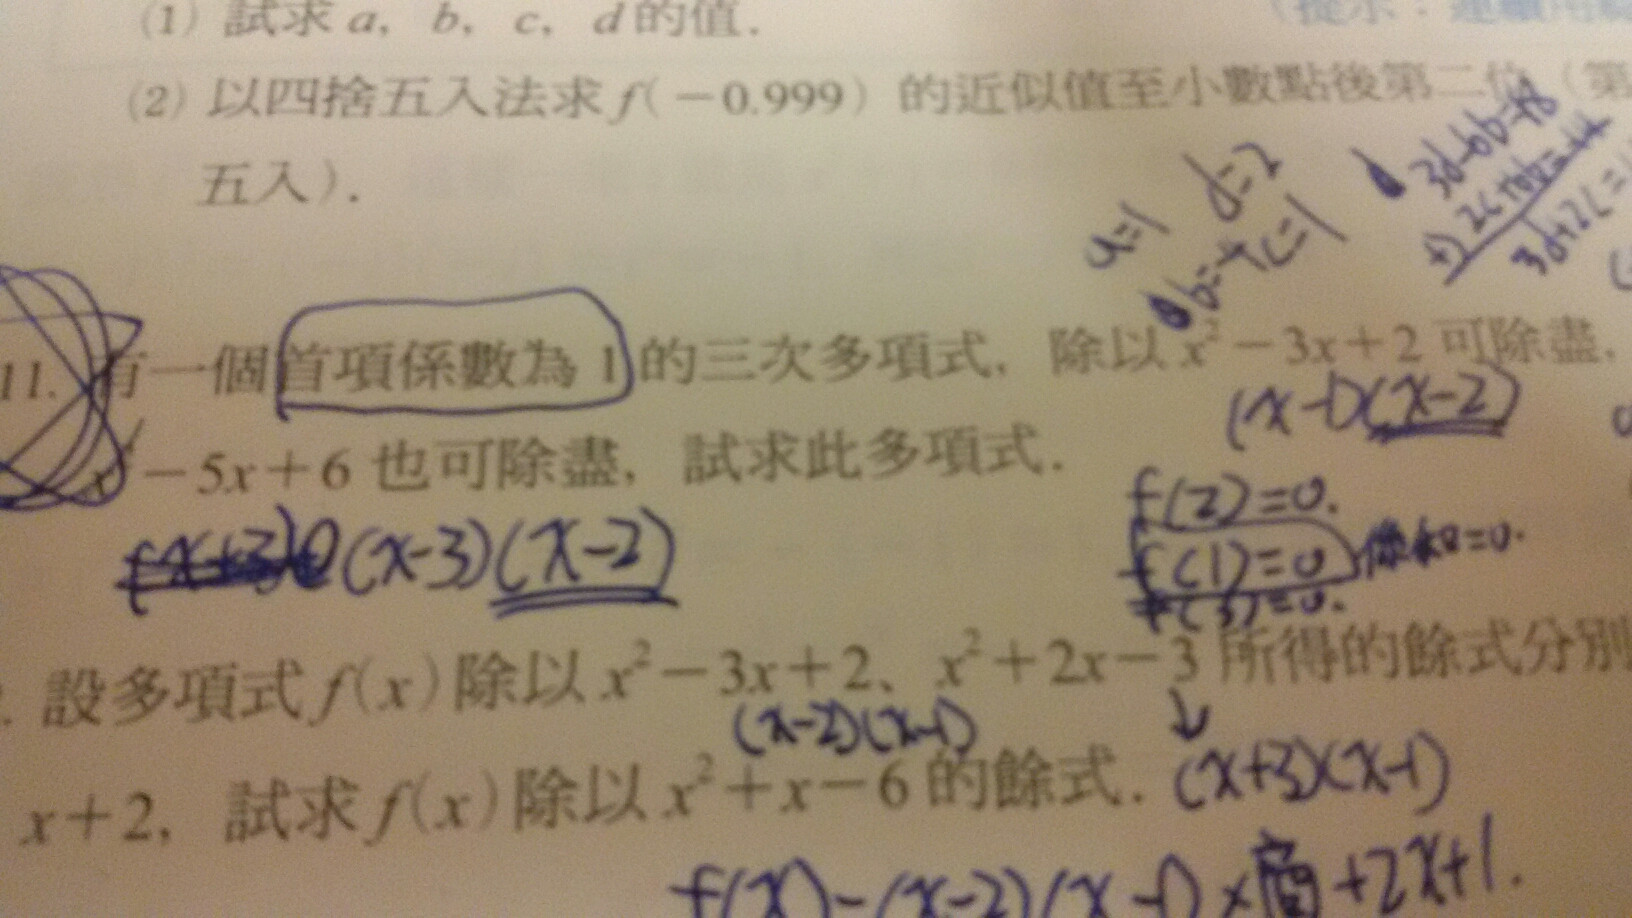 (1) 試求 a, b, c, d 的值.
(提示:連續用
(2) 以四捨五入法求 f(-0.999) 的近似值至小數點後第二位 (第
五入).
a=1 d=2
b=-4 c=1
3d-6b=
3d+2c=
11. 有一個首項係數為 1 的三次多項式, 除以 x²-3x+2 可除盡,
(x-1)(x-2)
x²-5x+6 也可除盡, 試求此多項式.
(x-3)(x-2)
f(2)=0.
f(1)=0
f(3)=0.
設多項式 f(x) 除以 x²-3x+2、x²+2x-3 所得的餘式分別
(x-2)(x-1)
x+2, 試求 f(x) 除以 x²+x-6 的餘式.
(x+3)(x-1)
f(x)=(x-2)(x-1)×商+2x+1.